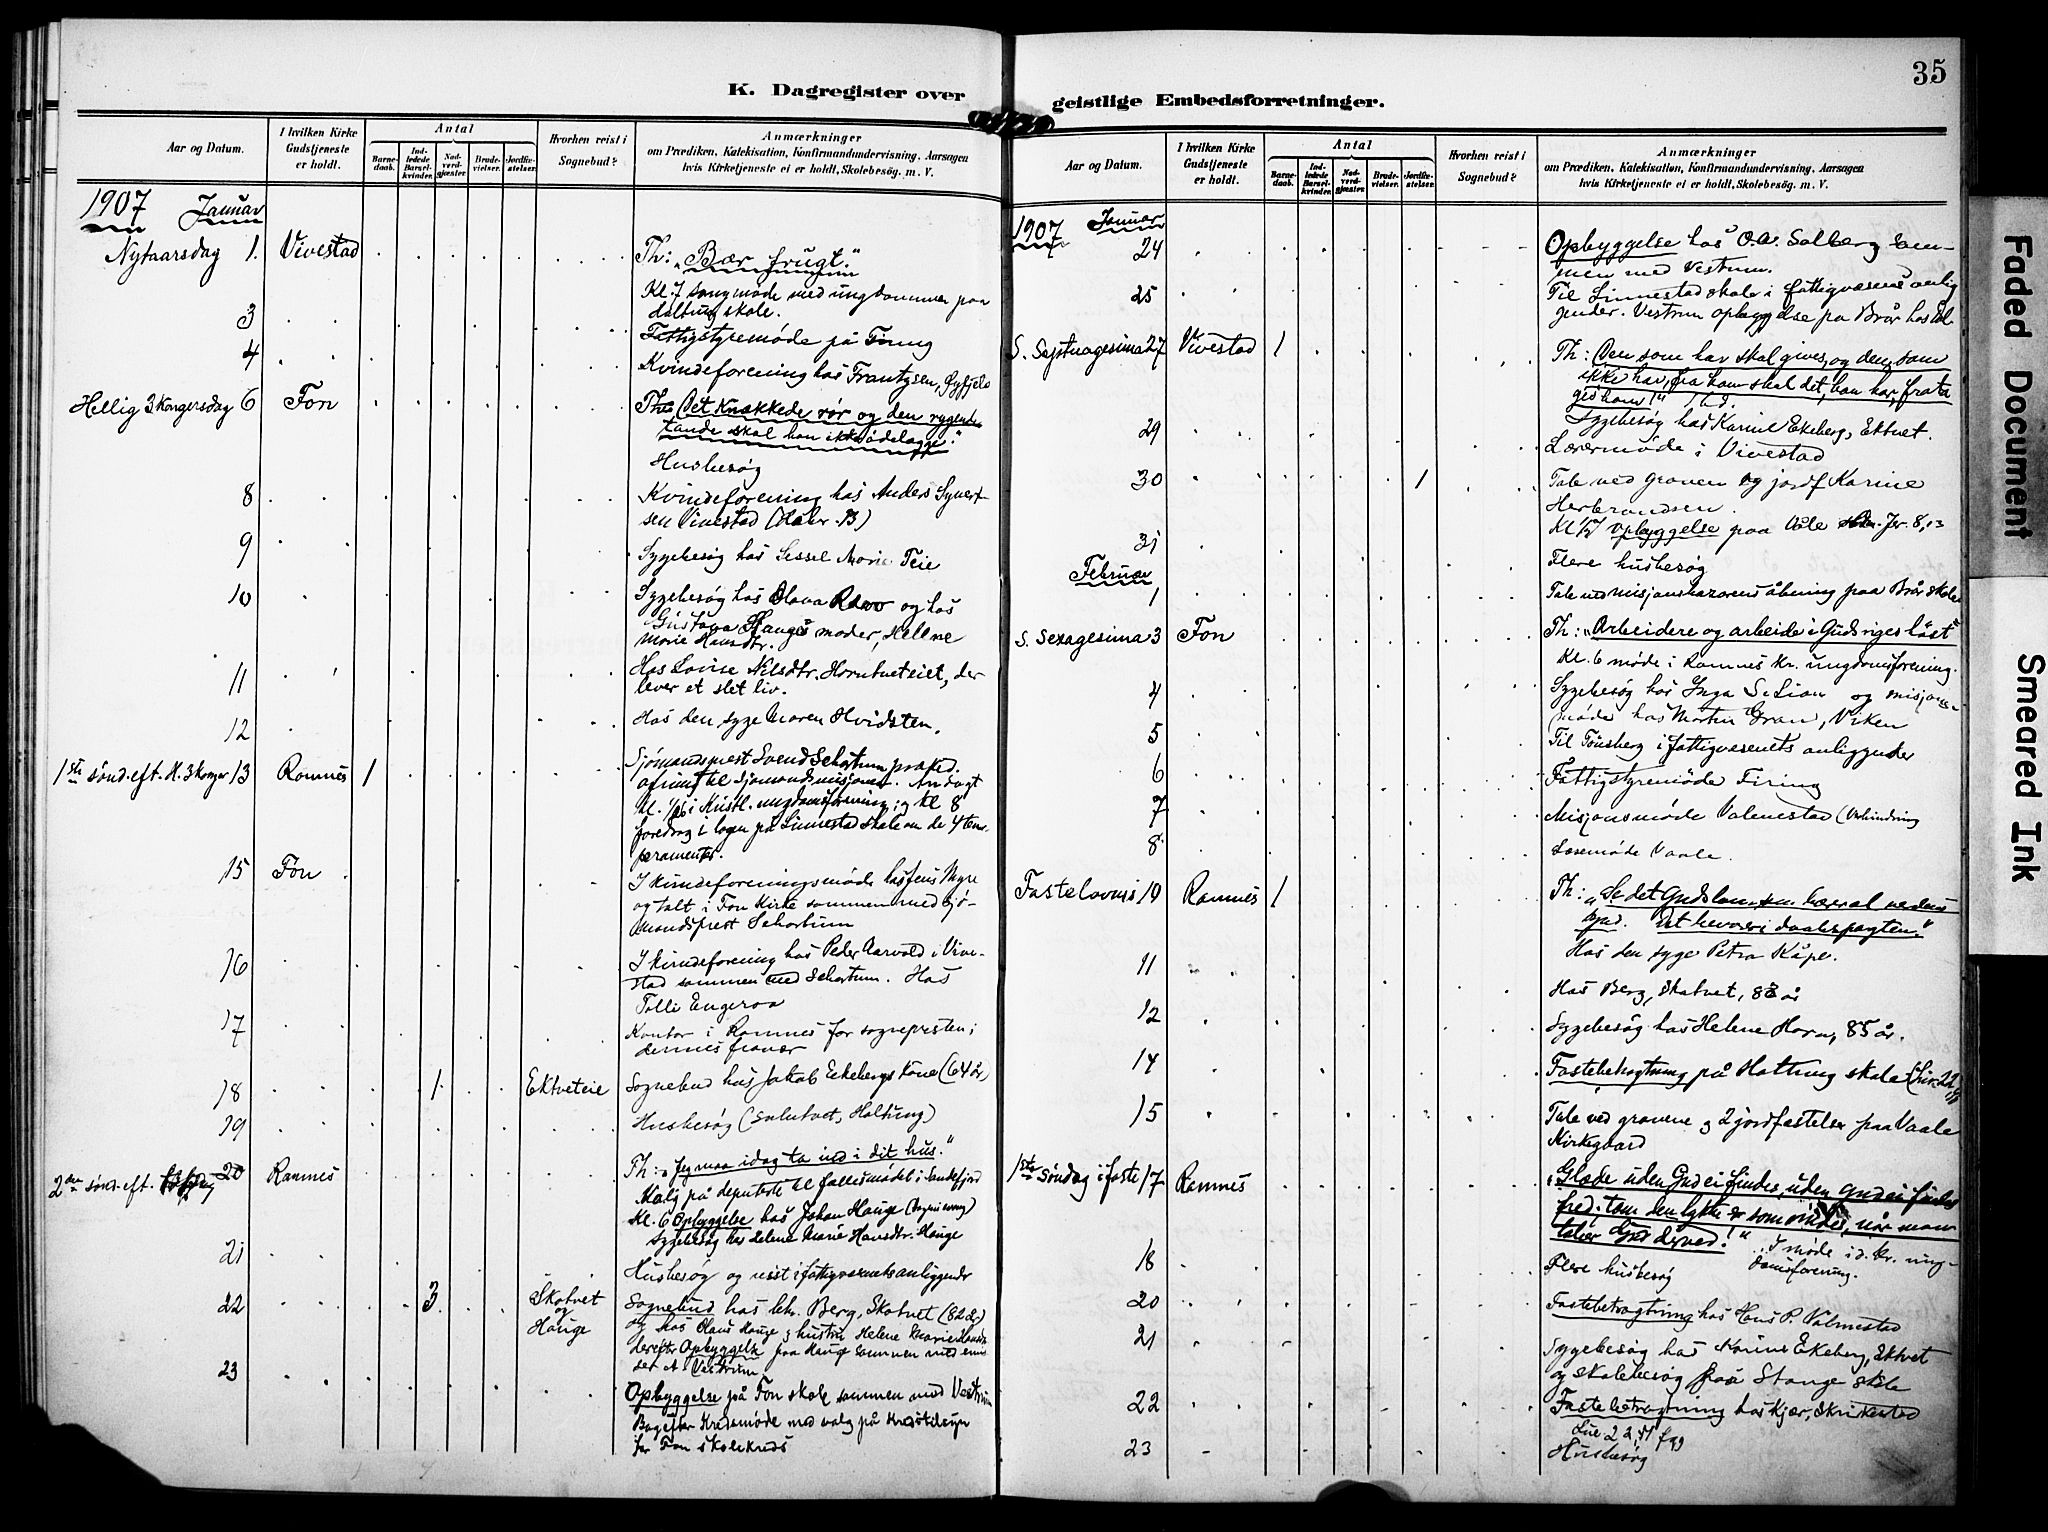 35
K. Dagregister over
geistlige Embedsforretninger.
Aar og Datum.
I hvilken Kirke Gudstjeneste er holdt.
Antal
Barnedaab.
Indledede Barselkvinder.
Nadverdgjæster.
Brudevielser.
Jordfæstelser.
Hvorhen reist i Sognebud?
Anmærkninger
om Prædiken, Katekisation, Konfirmandundervisning, Aarsagen
hvis Kirketjeneste ei er holdt, Skolebesøg. m. V.
1907 Januar
Nytaarsdag 1. Vivestad Th: "Bær frugt."
Kl. 7 sangmøde med ungdommen paa
skole.
3 Fattigstyremøde på Firing
4 Kvindeforening hos Frantzsen,
Hellig 3 Kongersdag 6 Fon Th: Det knækkede rør og den rygende
tande skal han ikke ødelægge."
Husbesøg
8 Kvindeforening hos Anders Syvert-
sen Vivestad
9 Sygebesøg hos Sessel Marie Teie
10 Sygebesøg hos Olava og hos
Gustava Hauges moder, Hellene
Marie Hansdtr.
11 Hos Lovise Nilsdtr. Horntveteiet, der
lever et slet liv.
12 Hos den syge Maren Hvidsten.
1ste sønd. eft. H. 3 konger 13 Ramnes 1 Sjømandsprest Svend Schartum præked.
ofring til sjømandsmisjonen. Andagt
Kl. i Kristl. ungdomsforening og Kl 8
foredrag i logen på Linnestad skole om de 4 tem-
peramenter.
15 Fon I kvindeforeningsmøde hos Jens Myre
og talt i Fon Kirke sammen med sjø-
mandsprest Schartum
16 I kvindeforening hos Peder Aarvold i Vive-
stad sammen med Schartum. Hos
Tolli Engeroa
17 Kontor i Ramnes for sognepresten i
dennes fravær
18 1 Ektveteie Sognebud hos Jakob Eekebergs kone (64 år)
19 Husbesøg (Solutvet, Haltung)
2den sønd. eft. 20 Ramnes Th: "Jeg maa idag ta ind i dit hus."
Valg på deputerte til fællesmødet i Sandefjord
Kl. 6 Opbyggelse hos Johan Hauge
Sygebesøg hos Helene Marie Hansdtr. Hauge
21 Husbesøg og reist i fattigvæsnets anliggender
22 3 Skotvet
og
Hauge
Sognebud hos Berg, Skotvet (82 år)
og hos Olaus Hauge og hustru Helene Marie Hans
Opbyggelse paa Hauge sammen med
A Vestrum
23 Opbyggelse på Fon skole sammen med Vestrum
Bagefter Kredsmøde med valg på Kredstilsyn
for Fon skolekreds
Aar og Datum.
I hvilken Kirke Gudstjeneste er holdt.
Antal
Barnedaab.
Indledede Barselkvinder.
Nadverdgjæster.
Brudevielser.
Jordfæstelser.
Hvorhen reist i Sognebud?
Anmærkninger
om Prædiken, Katekisation, Konfirmandundervisning, Aarsagen
hvis Kirketjeneste ei er holdt, Skolebesøg. m. V.
1907 Januar
24 Opbyggelse hos O.A. Solberg sam-
men med Vestrum.
25 Til Linnestad skole i fattigvæsnets anlig
gender. Vestrum opbyggelse pa Brår
S. Septuagesima 27 Vivestad 1 Th: Den som har skal gives, og den, som
ikke har, fra ham skal det, han har, frata
ges ham!"
29 Sygebesøg hos Karine Ekeberg, Ektvet.
Lærermøde i Vivestad
30 1 Tale ved graven og jordf Karine
Herbrandsen.
Kl opbyggelse paa Våle Jer. 8, 13
31 Flere husbesøg
Februar
1 Tale ved misjonsbazarens åbning paa Brår skole
S. Sexagesima 3 Fon Th: "Arbeidere og arbeide i Guds riges høst"
Kl. 6 møde i Ramnes kr. ungdomsforening.
4 Sygebesøg hos Inga S. Lian og misjons-
møde hos Martin Gran, Virken
5 Til Tönsberg i fattigvæsenets anliggender
6 Fattigstyremøde Firing
7 Misjonsmøde Valmestad
8 Læsemøde Vaale.
Fastelavns 10 Ramnes 1 Th: "Se det Guds lam, som bærer al verdens
synd. Det bevarer i daabspagten."
Hos den syge Petra Kåpe.
11 Hos Berg, Skotvet, 82 år
12 Sygebesøg hos Helene Horn, 85 år.
14 Fastebetragtning på Haltung skole
15 Tale ved gravene og 2 jordfæstelser paa Vaale
Kirkegaard
1ste søndag i faste 17 Ramnes "Glæde uden Gud ei findes, uden Gud ei findes
fred; tom den lykke er som vindes, når man
taber Gud derved!" I møde i d. kr. ung-
domsforening.
18 Flere husbesøg
20 Fastebetragtning hos Hans P. Valmestad
21 Sygebesøg hos Karine Ekeberg, Ektvet
og skolebesøg paa Stange skole
22 Fastebetragtning hos Kjær, Skrikestad
23 Husbesøg
Faded Document
Smeared Ink